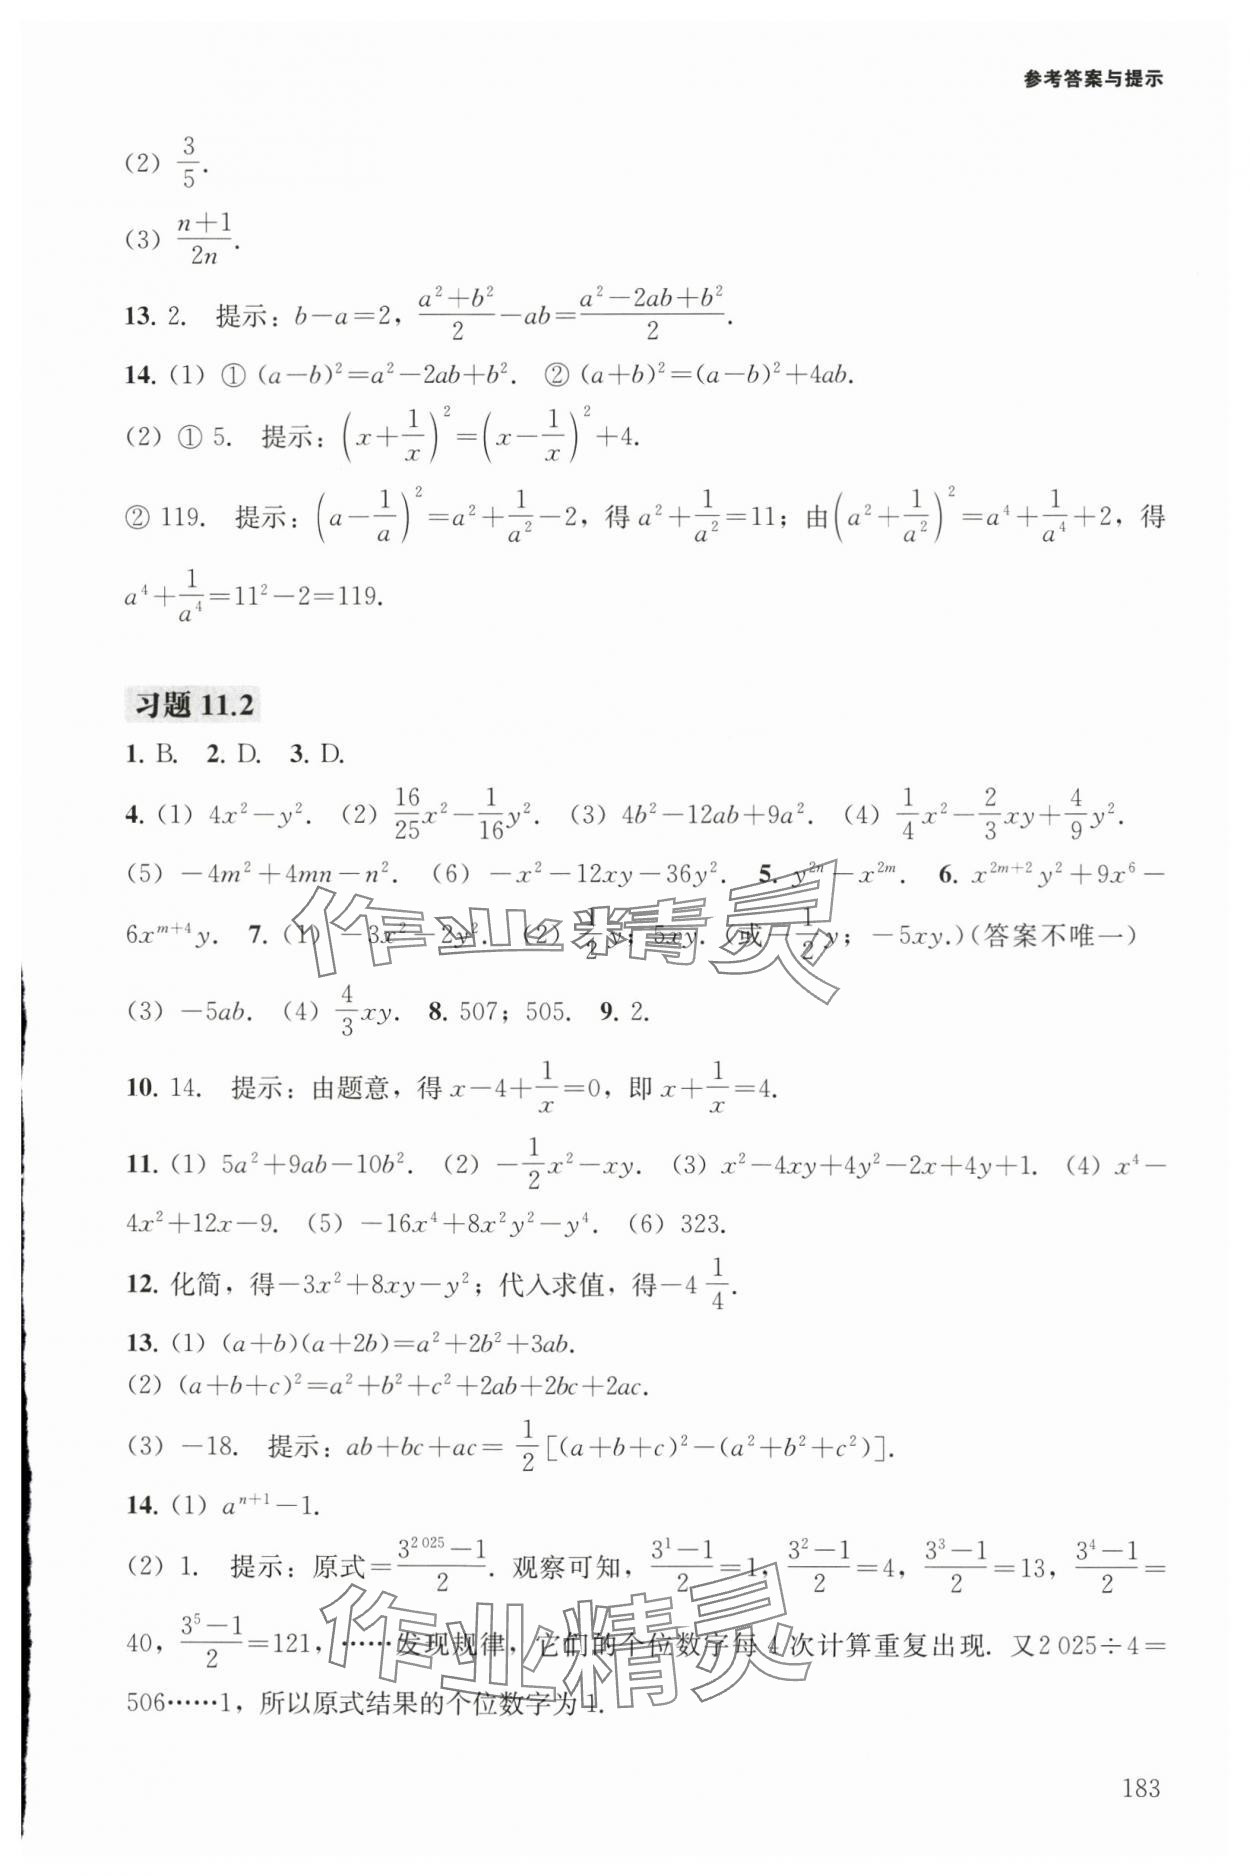 参考答案与提示
(2) 3/5.
(3) (n+1)/(2n).
13. 2. 提示：b－a＝2，(a²＋b²)/2－ab＝(a²－2ab＋b²)/2.
14. (1) ① (a－b)²＝a²－2ab＋b². ② (a＋b)²＝(a－b)²＋4ab.
(2) ① 5. 提示：(x＋1/x)²＝(x－1/x)²＋4.
② 119. 提示：(a－1/a)²＝a²＋1/a²－2，得 a²＋1/a²＝11；由(a²＋1/a²)²＝a⁴＋1/a⁴＋2，得
a⁴＋1/a⁴＝11²－2＝119.
习题 11.2
1. B. 2. D. 3. D.
4. (1) 4x²－y². (2) 16/25x²－1/16y². (3) 4b²－12ab＋9a². (4) 1/4x²－2/3xy＋4/9y².
(5) －4m²＋4mn－n². (6) －x²－12xy－36y². 5. y²ⁿ－x²ᵐ. 6. x²ᵐ⁺²y²＋9x⁶－
6xᵐ⁺⁴y. 7. (1) －3x²－2y². (2) 1/2y；5xy. (或－1/2y；－5xy.)(答案不唯一)
(3) －5ab. (4) 4/3xy. 8. 507；505. 9. 2.
10. 14. 提示：由题意，得 x－4＋1/x＝0，即 x＋1/x＝4.
11. (1) 5a²＋9ab－10b². (2) －1/2x²－xy. (3) x²－4xy＋4y²－2x＋4y＋1. (4) x⁴－
4x²＋12x－9. (5) －16x⁴＋8x²y²－y⁴. (6) 323.
12. 化简，得－3x²＋8xy－y²；代入求值，得－4 1/4.
13. (1) (a＋b)(a＋2b)＝a²＋2b²＋3ab.
(2) (a＋b＋c)²＝a²＋b²＋c²＋2ab＋2bc＋2ac.
(3) －18. 提示：ab＋bc＋ac＝1/2[(a＋b＋c)²－(a²＋b²＋c²)].
14. (1) aⁿ⁺¹－1.
(2) 1. 提示：原式＝(3²⁰²⁵－1)/2. 观察可知，(3¹－1)/2＝1，(3²－1)/2＝4，(3³－1)/2＝13，(3⁴－1)/2＝
40，(3⁵－1)/2＝121，……发现规律，它们的个位数字每 4 次计算重复出现. 又 2 025÷4＝
506……1，所以原式结果的个位数字为 1.
183
作业精灵
作业精灵